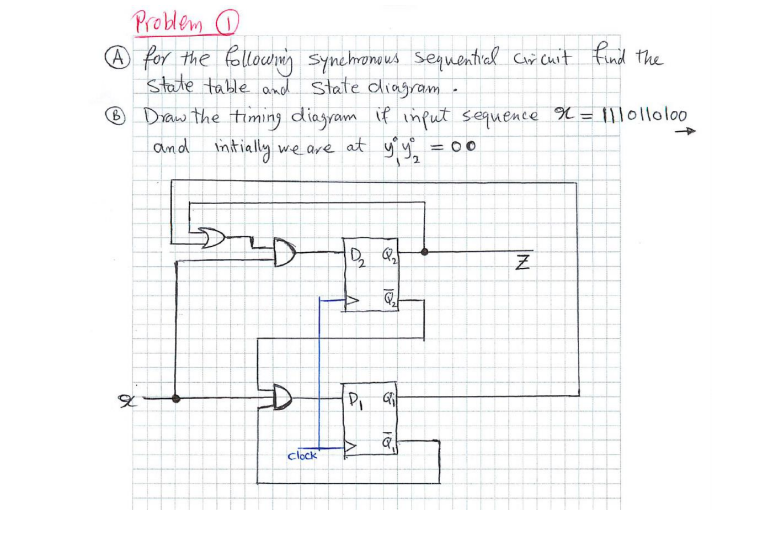 Problem ①
Ⓐ for the following synchronous sequential circuit find the
State table and State diagram.
Ⓑ Draw the timing diagram if input sequence x = 1110110100
and initially we are at y₁⁰y₂⁰ = 00
D₂ Q₂
Z
Q̅₂
x
D₁ Q₁
Q̅₁
clock